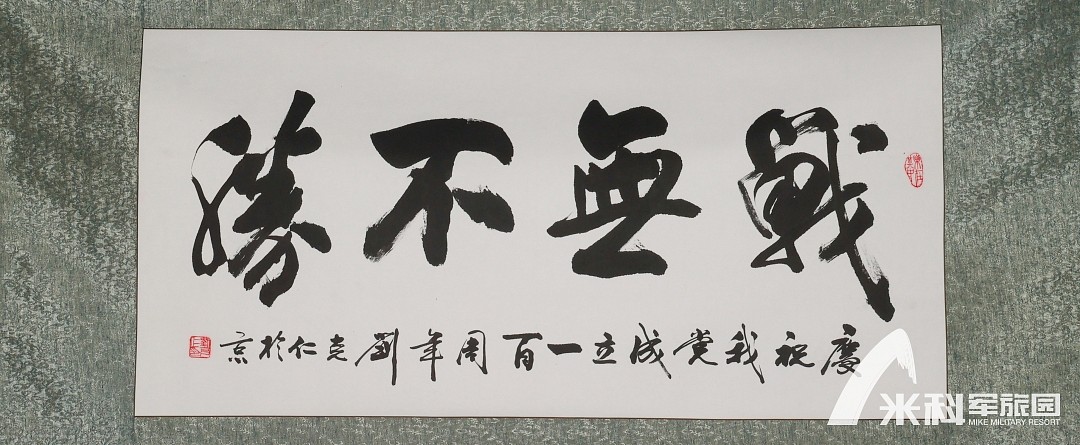 戰無不勝
慶祝我党成立一百周年劉克仁於京
米科军旅园
MIKE MILITARY RESORT